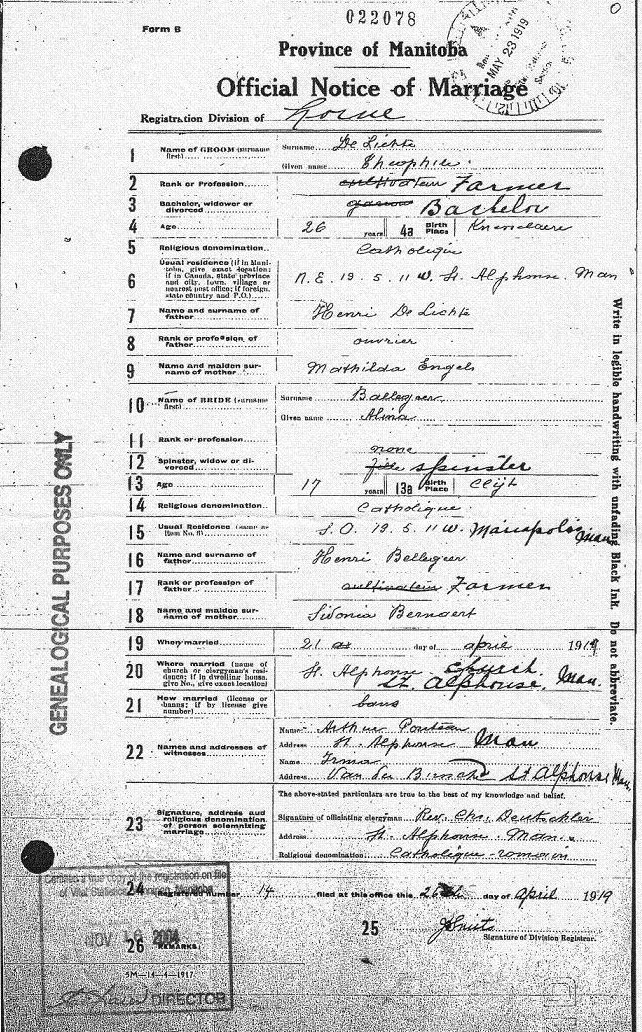 Form B
022078
MAY 23 1919
Province of Manitoba
Official Notice of Marriage
Registration Division of Lorne
1 Name of GROOM (surname first) Surname De Lichte
Given name Theophile
2 Rank or Profession cultivateur Farmer
3 Bachelor, widower or divorced garcon Bachelor
4 Age 26 years 4a Birth Place
5 Religious denomination Catholique
6 Usual residence (if in Manitoba, give exact location; if in Canada, state province and city, town, village or nearest post office; if foreign, state country and P.O.) N.E. 19. 5. 11 W. St. Alphonse. Man
7 Name and surname of father Henri De Lichte
8 Rank or profession of father ouvrier
9 Name and maiden surname of mother Mathilda Engels
10 Name of BRIDE (surname first) Surname Ballegeer
Given name Alina
11 Rank or profession none
12 Spinster, widow or divorced fille Spinster
13 Age 17 years 13a Birth Place
14 Religious denomination Catholique
15 Usual Residence (same as Item No. 6) S.O. 19. 5. 11 W. Mariapolis Man
16 Name and surname of father Henri Bellegeer
17 Rank or profession of father cultivateur Farmer
18 Name and maiden surname of mother Sidonia Bernaert
19 When married 21 day of april 1919
20 Where married (name of church or clergyman's residence; if in dwelling house, give No., give exact location) St. Alphonse Church.
St. Alphonse. Man.
21 How married (license or banns; if by license give number) bans
22 Names and addresses of witnesses Name Arthur
Address St. Alphonse Man
Name Irma
Address Van der St Alphonse Man.
The above-stated particulars are true to the best of my knowledge and belief.
23 Signature, address and religious denomination of person solemnizing marriage Signature of officiating clergyman Rev. Chr. Deutschler
Address St. Alphonse Man.
Religious denomination Catholique-romain
24 Registered number 14 filed at this office this day of April 1919
25 Signature of Division Registrar.
26 REMARKS:
5M-14-4-1917.
Certified a true copy of the registration on file
of Vital Statistics, Manitoba
NOV 2004
DIRECTOR
GENEALOGICAL PURPOSES ONLY
Write in legible handwriting with unfading Black Ink. Do not abbreviate.